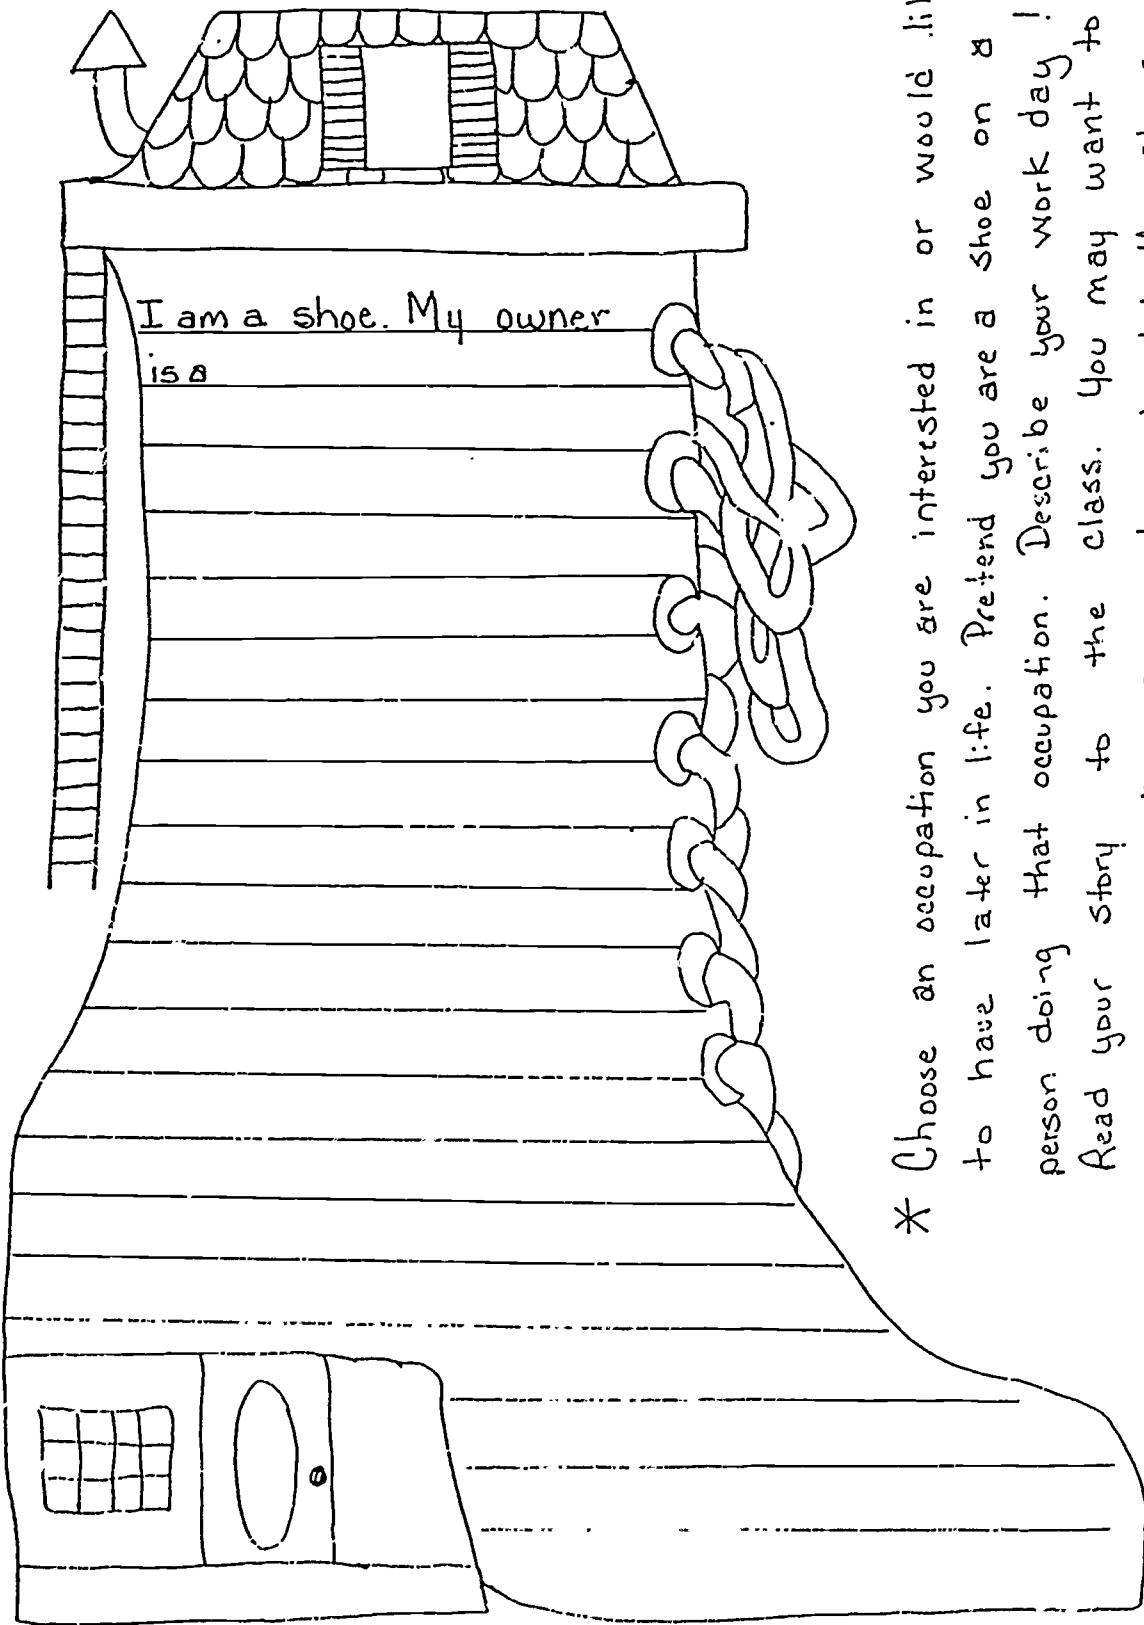 I am a shoe. My owner
is a
* Choose an occupation you are interested in or would
to have later in life. Pretend you are a shoe on a
person doing that occupation. Describe your work day!
Read your story to the class. You may want to